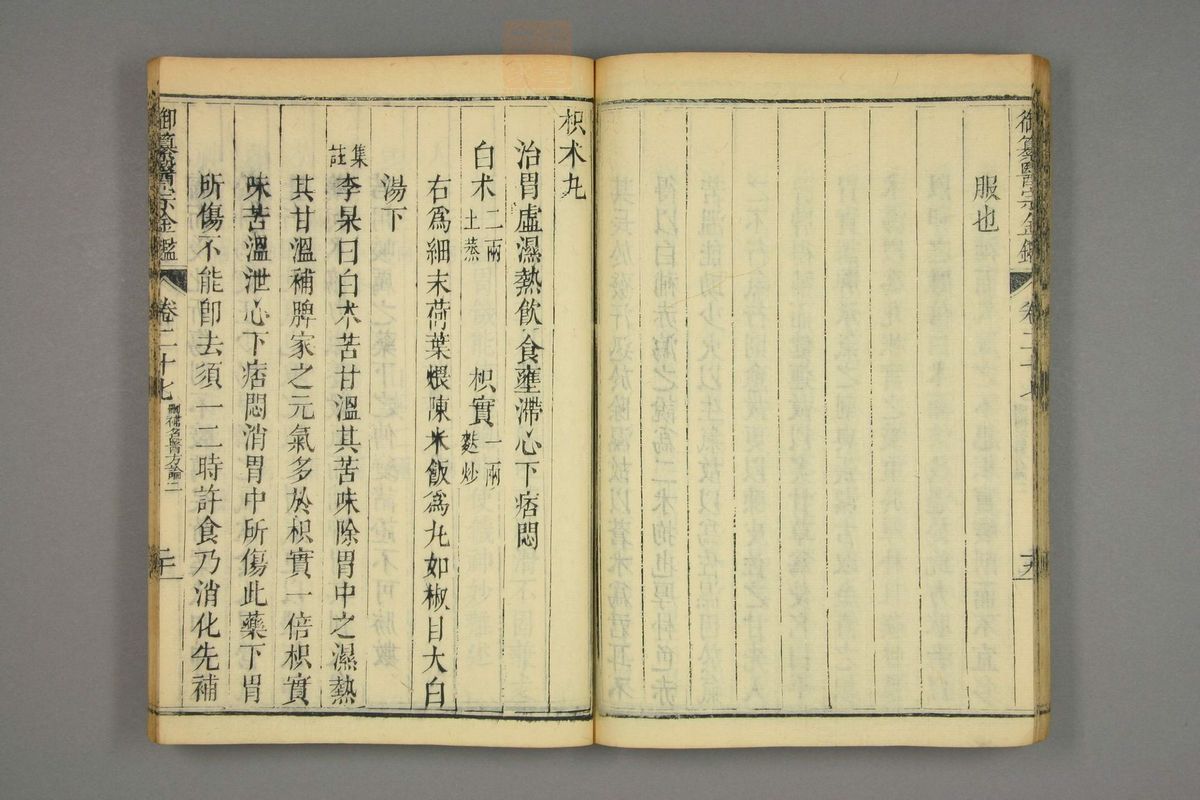 御纂醫宗金鑑
卷二十七
服也
枳朮丸
治胃虛濕熱飲食壅滯心下痞悶
白朮二兩土蒸 枳實一兩麩炒
右爲細末荷葉煨陳米飯爲丸如椒目大白
湯下
集註李杲曰白朮苦甘溫其苦味除胃中之濕熱
其甘溫補脾家之元氣多於枳實一倍枳實
味苦溫泄心下痞悶消胃中所傷此藥下胃
所傷不能卽去須一二時許食乃消化先補
御纂醫宗金鑑
卷二十七
刪補名醫方論二